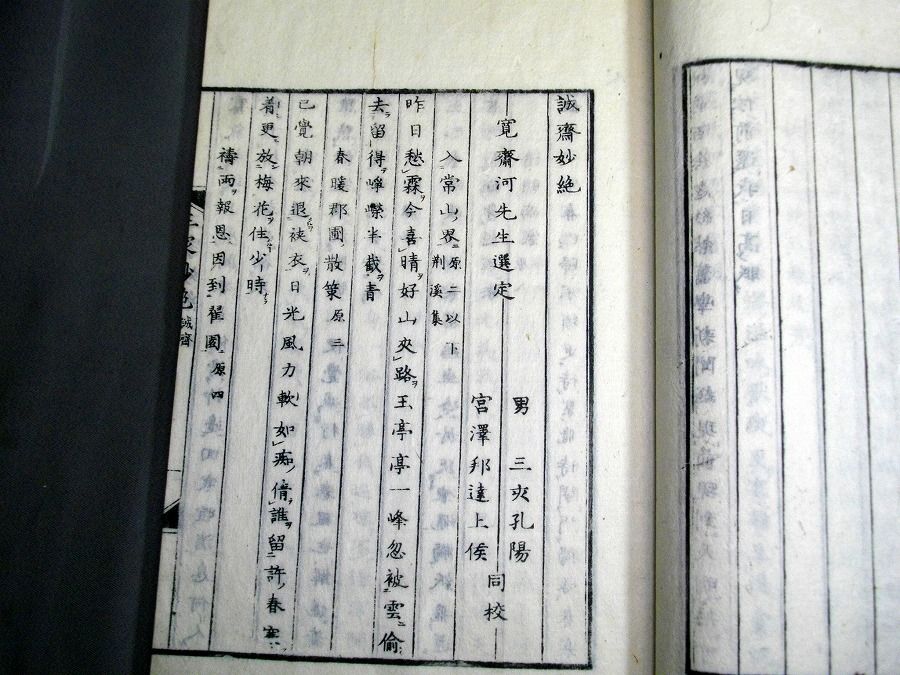 誠齋妙絶
寛齋河先生選定
男 三亥孔陽
宮澤邦達上侯
同校
入常山界 原二以下荊溪集
昨日愁霖今喜晴好山夾路玉亭亭一峰忽被雲偷
去留得崢嶸半截青
春暖郡圃散策 原三
已覺朝來退裌衣日光風力軟如痴倩誰留許春寒
着更放梅花住少時
禱雨報恩因到翟園 原四
三家妙絶 誠齋